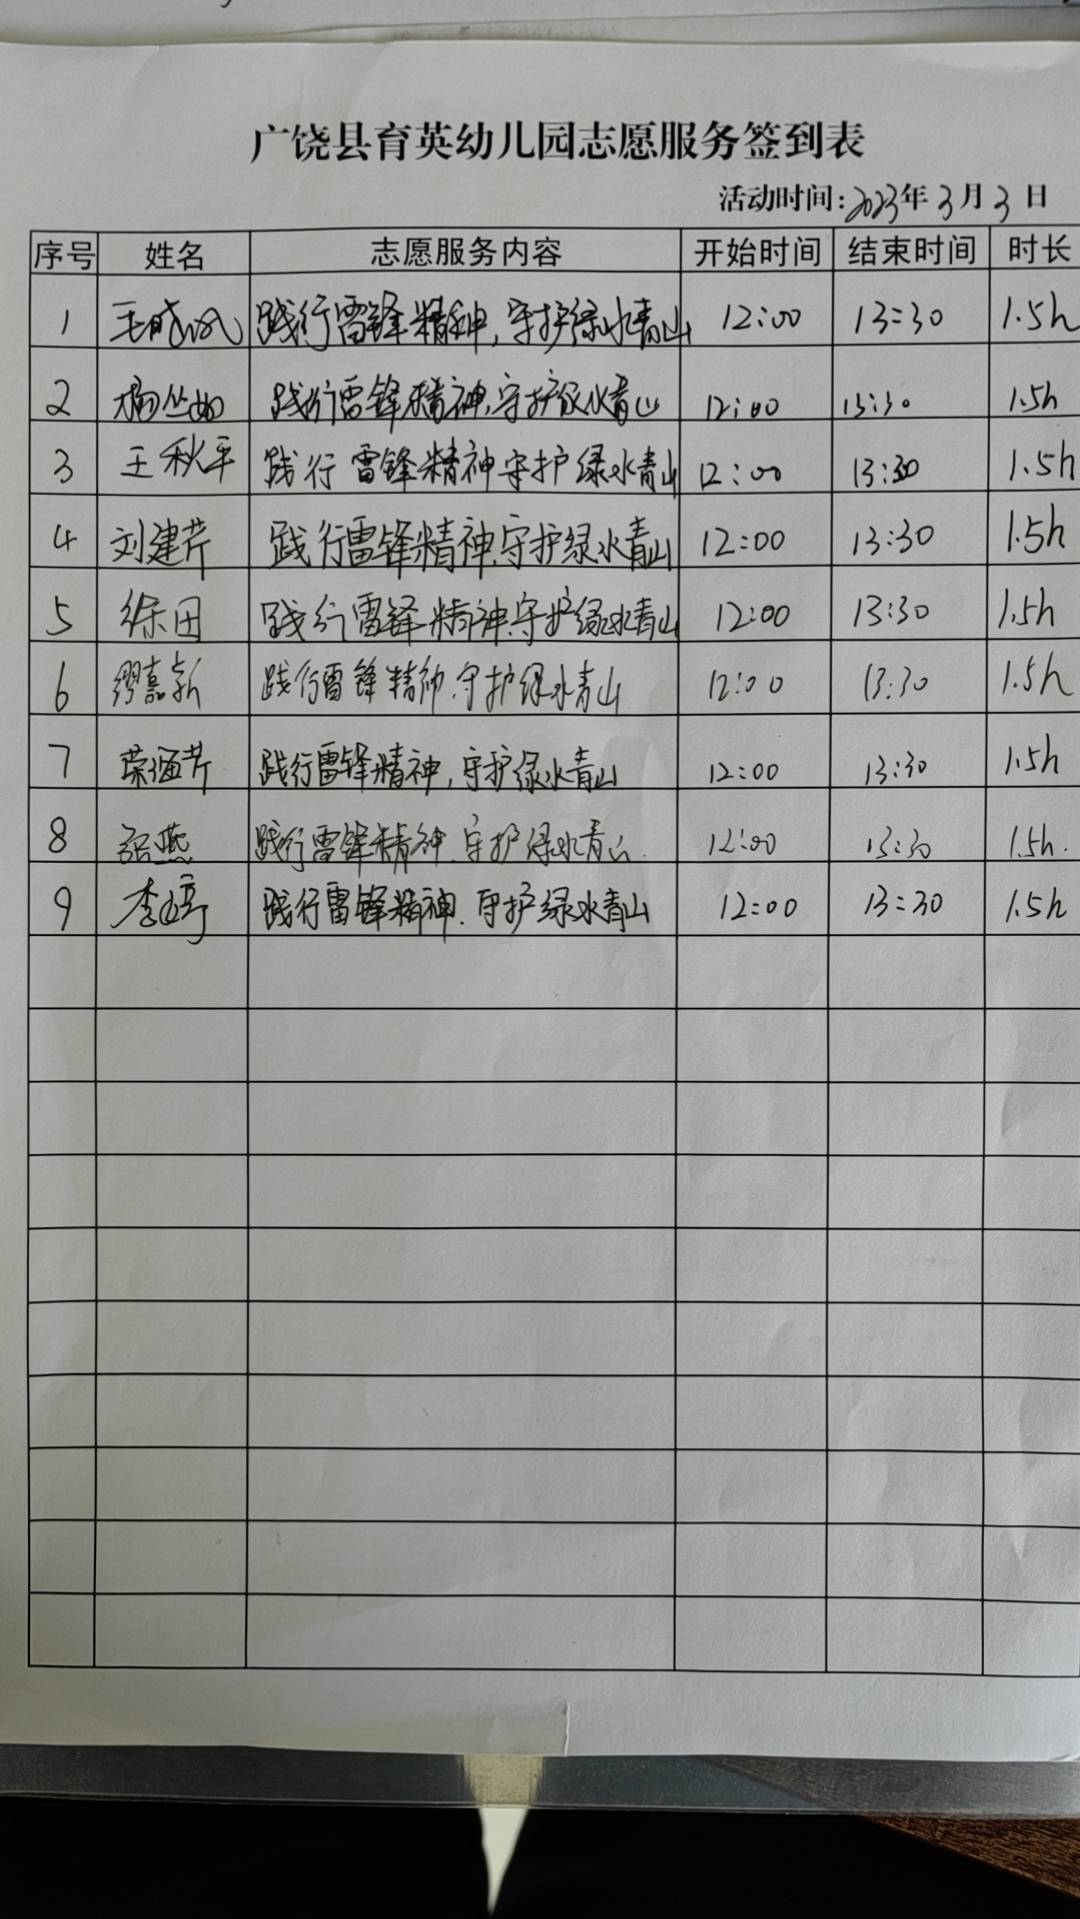 广饶县育英幼儿园志愿服务签到表
活动时间:2023年3月3日
序号 姓名 志愿服务内容 开始时间 结束时间 时长
1 王 践行雷锋精神,守护绿水青山 12:00 13:30 1.5h
2 杨丛如 践行雷锋精神,守护绿水青山 12:00 13:30 1.5h
3 王秋平 践行雷锋精神守护绿水青山 12:00 13:30 1.5h
4 刘建芹 践行雷锋精神,守护绿水青山 12:00 13:30 1.5h
5 徐田 践行雷锋精神,守护绿水青山 12:00 13:30 1.5h
6 缪嘉新 践行雷锋精神,守护绿水青山 12:00 13:30 1.5h
7 荣 芹 践行雷锋精神,守护绿水青山 12:00 13:30 1.5h
8 张燕 践行雷锋精神,守护绿水青山. 12:00 13:30 1.5h.
9 李 婷 践行雷锋精神.守护绿水青山 12:00 13:30 1.5h